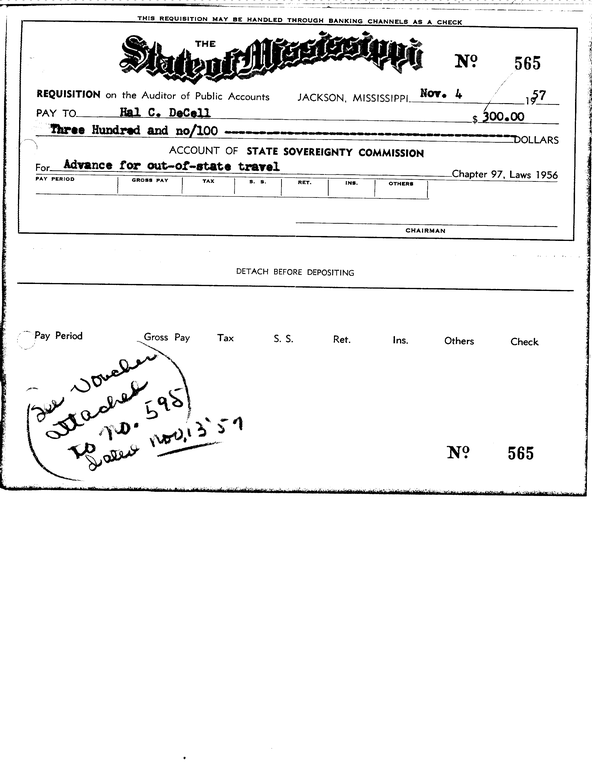 THIS REQUISITION MAY BE HANDLED THROUGH BANKING CHANNELS AS A CHECK
THE
State of Mississippi
Nº 565
REQUISITION on the Auditor of Public Accounts JACKSON, MISSISSIPPI, Nov. 4 1957
PAY TO Hal C. DeCell $ 300.00
Three Hundred and no/100 DOLLARS
ACCOUNT OF STATE SOVEREIGNTY COMMISSION
For Advance for out-of-state travel Chapter 97, Laws 1956
PAY PERIOD GROSS PAY TAX S. S. RET. INS. OTHERS
CHAIRMAN
DETACH BEFORE DEPOSITING
Pay Period Gross Pay Tax S. S. Ret. Ins. Others Check
See Voucher
attached
to no. 595
dated Nov. 13 '57
Nº 565